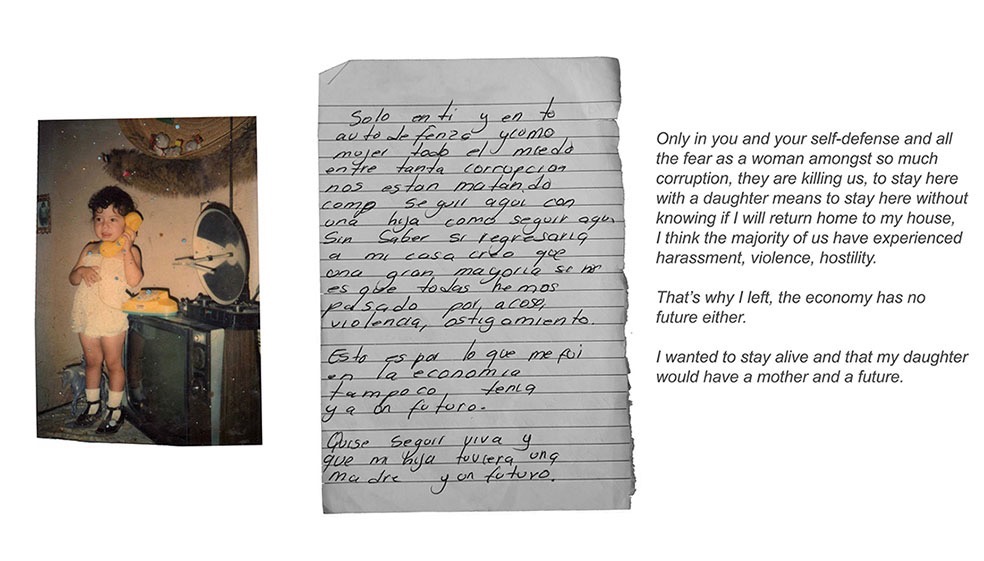 Solo en ti y en tu
autodefenza y como
mujer todo el miedo
entre tanta corrupcion
nos estan matando
como seguir aqui con
una hija como seguir aqui
Sin Saber si regresaria
a mi casa creo que
una gran mayoria si no
es que todas hemos
pasado por, acoso,
violencia, ostigamiento.
Esto es por lo que me fui
en la economia
tampoco tenia
ya un futuro.
Quise seguir viva y
que mi hija tuviera una
madre y un futuro.
Only in you and your self-defense and all
the fear as a woman amongst so much
corruption, they are killing us, to stay here
with a daughter means to stay here without
knowing if I will return home to my house,
I think the majority of us have experienced
harassment, violence, hostility.
That's why I left, the economy has no
future either.
I wanted to stay alive and that my daughter
would have a mother and a future.